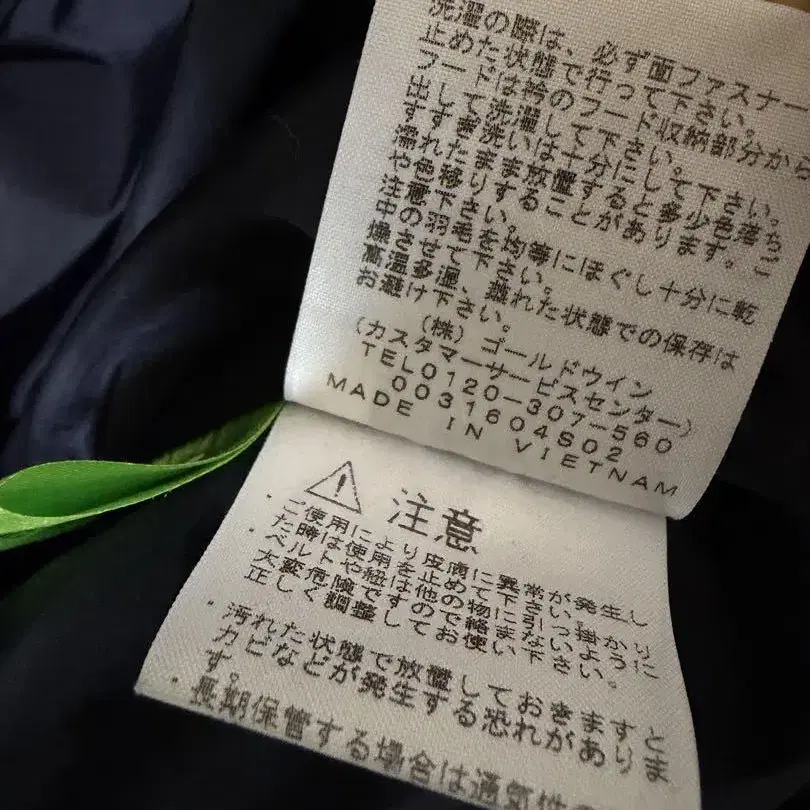 洗濯の際は、必ず面ファスナー
止めた状態で行って下さい。
フードは衿のフード収納部分から
出して洗濯して下さい。
すすぎ洗いは十分にして下さい。
濡れたまま放置すると多少色落ち
や色移りすることがあります。ご
注意下さい。
中の羽毛を均等にほぐし十分に乾
燥させて下さい。
高温多湿、蒸れた状態での保存は
お避け下さい。
(株)ゴールドウイン
(カスタマーサービスセンター)
TEL0120-307-560
0031604S02
MADE IN VIETNAM
注意
・ご使用により皮膚に異常が発生し
た時は使用を止めて下さい。
・ベルトや紐は他の物に引っ掛かり
大変危険ですので絡まないように
正しく調整してお使い下さい。
・汚れた状態で放置しておきますと
カビなどが発生する恐れがありま
す。
・長期保管する場合は通気性